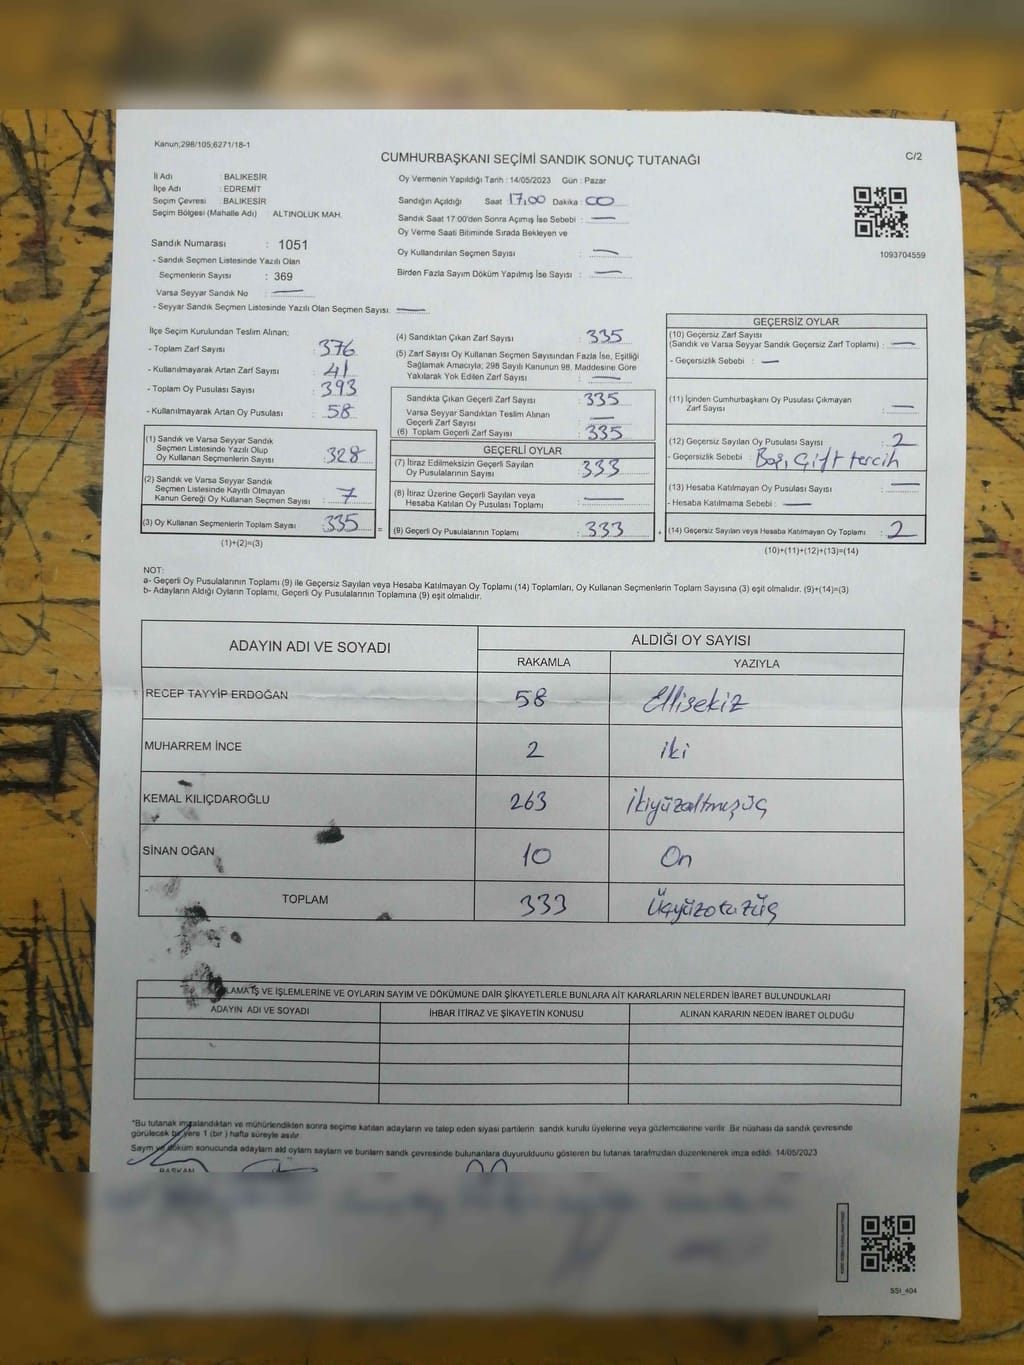 Kanun,298/105;6271/18-1
CUMHURBAŞKANI SEÇİMİ SANDIK SONUÇ TUTANAĞI
C/2
İl Adı : BALIKESİR
İlçe Adı : EDREMİT
Seçim Çevresi : BALIKESİR
Seçim Bölgesi (Mahalle Adı) : ALTINOLUK MAH.
Sandık Numarası : 1051
- Sandık Seçmen Listesinde Yazılı Olan
Seçmenlerin Sayısı : 369
Varsa Seyyar Sandık No : —
- Seyyar Sandık Seçmen Listesinde Yazılı Olan Seçmen Sayısı: —
Oy Vermenin Yapıldığı Tarih : 14/05/2023 Gün : Pazar
Sandığın Açıldığı Saat 17,00 Dakika : 00
Sandık Saat 17:00'den Sonra Açımış İse Sebebi : —
Oy Verme Saati Bitiminde Sırada Bekleyen ve
Oy Kullandırılan Seçmen Sayısı : —
Birden Fazla Sayım Döküm Yapılmış İse Sayısı : —
1093704559
İlçe Seçim Kurulundan Teslim Alınan;
- Toplam Zarf Sayısı : 376
- Kullanılmayarak Artan Zarf Sayısı : 41
- Toplam Oy Pusulası Sayısı : 393
- Kullanılmayarak Artan Oy Pusulası : 58
(1) Sandık ve Varsa Seyyar Sandık
Seçmen Listesinde Yazılı Olup
Oy Kullanan Seçmenlerin Sayısı : 328
(2) Sandık ve Varsa Seyyar Sandık
Seçmen Listesinde Kayıtlı Olmayan
Kanun Gereği Oy Kullanan Seçmen Sayısı : 7
(3) Oy Kullanan Seçmenlerin Toplam Sayısı : 335
(1)+(2)=(3)
=
(4) Sandıktan Çıkan Zarf Sayısı : 335
(5) Zarf Sayısı Oy Kullanan Seçmen Sayısından Fazla İse, Eşitliği
Sağlamak Amacıyla; 298 Sayılı Kanunun 98. Maddesine Göre
Yakılarak Yok Edilen Zarf Sayısı : —
Sandıkta Çıkan Geçerli Zarf Sayısı : 335
Varsa Seyyar Sandıktan Teslim Alınan
Geçerli Zarf Sayısı : —
(6) Toplam Geçerli Zarf Sayısı : 335
GEÇERLİ OYLAR
(7) İtiraz Edilmeksizin Geçerli Sayılan
Oy Pusulalarının Sayısı : 333
(8) İtiraz Üzerine Geçerli Sayılan veya
Hesaba Katılan Oy Pusulası Toplamı : —
(9) Geçerli Oy Pusulalarının Toplamı : 333
GEÇERSİZ OYLAR
(10) Geçersiz Zarf Sayısı
(Sandık ve Varsa Seyyar Sandık Geçersiz Zarf Toplamı) : —
- Geçersizlik Sebebi : —
(11) İçinden Cumhurbaşkanı Oy Pusulası Çıkmayan
Zarf Sayısı : —
(12) Geçersiz Sayılan Oy Pusulası Sayısı : 2
- Geçersizlik Sebebi : Boş, Çift tercih
(13) Hesaba Katılmayan Oy Pusulası Sayısı : —
- Hesaba Katılmama Sebebi : —
(14) Geçersiz Sayılan veya Hesaba Katılmayan Oy Toplamı : 2
(10)+(11)+(12)+(13)=(14)
NOT:
a- Geçerli Oy Pusulalarının Toplamı (9) ile Geçersiz Sayılan veya Hesaba Katılmayan Oy Toplamı (14) Toplamları, Oy Kullanan Seçmenlerin Toplam Sayısına (3) eşit olmalıdır. (9)+(14)=(3)
b- Adayların Aldığı Oyların Toplamı, Geçerli Oy Pusulalarının Toplamına (9) eşit olmalıdır.
ADAYIN ADI VE SOYADI
ALDIĞI OY SAYISI
RAKAMLA YAZIYLA
RECEP TAYYİP ERDOĞAN 58 Ellisekiz
MUHARREM İNCE 2 iki
KEMAL KILIÇDAROĞLU 263 İkiyüzaltmışüç
SİNAN OĞAN 10 On
TOPLAM 333 Üçyüzotuzüç
İŞ VE İŞLEMLERİNE VE OYLARIN SAYIM VE DÖKÜMÜNE DAİR ŞİKAYETLERLE BUNLARA AİT KARARLARIN NELERDEN İBARET BULUNDUKLARI
ADAYIN ADI VE SOYADI İHBAR İTİRAZ VE ŞİKAYETİN KONUSU ALINAN KARARIN NEDEN İBARET OLDUĞU
*Bu tutanak imzalandıktan ve mühürlendikten sonra seçime katılan adayların ve talep eden siyasi partilerin sandık kurulu üyelerine veya gözlemcilerine verilir. Bir nüshası da sandık çevresinde
görülecek bir yere 1 (bir) hafta süreyle asılır.
Sayım ve döküm sonucunda adayların ald oyların sayların ve bunların sandık çevresinde bulunanlara duyurulduunu gösteren bu tutanak tarafımızdan düzenlenerek imza edildi. 14/05/2023
BAŞKAN
SSI_404